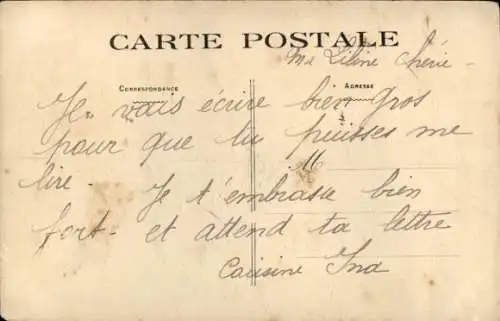 CARTE POSTALE
Ma Liline chérie -
CORRESPONDANCE
ADRESSE
Je vais écrire bien gros
pour que tu puisses me
lire - M
Je t'embrasse bien
fort - et attend ta lettre
Cousine Ina